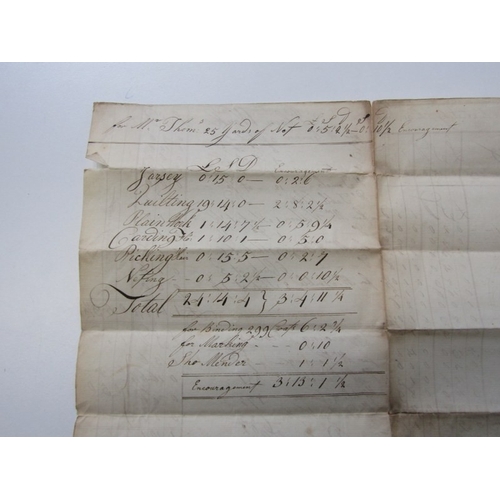 for Mr Thoms 25 Yards of Net 0:5:2½ — 0:0:10½ Encouragement
L S D Encouragement
Jersey 0:15:0 — 0:2:6
Quilting 19:14:0 — 2:8:2½
Plainwork 1:14:7½ — 0:5:9¼
Carding 1:10:1 — 0:5:0
Picking Hair 0:15:5 — 0:2:7
Netting — 0:5:2½ — 0:0:10½
Total 24:14:4 } 3:4:11¼
for Binding 299 6:2¾
for Marking - - 0:10
Sho Mender 1:1½
Encouragement 3:13:1½